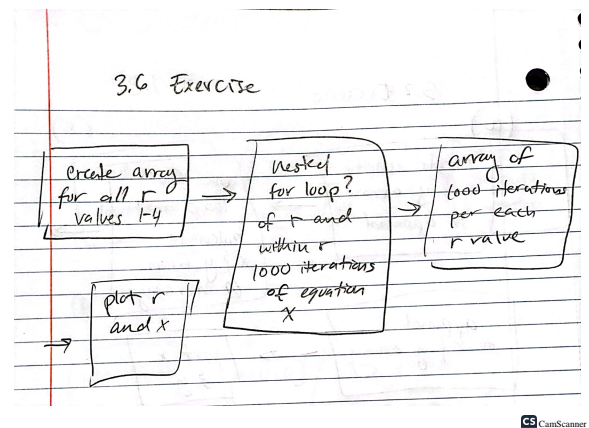 3.6 Exercise
Create array
for all r
values 1-4
nested
for loop?
of r and
within r
1000 iterations
of equation
X
array of
1000 iterations
per each
r value
plot r
and x
CS CamScanner